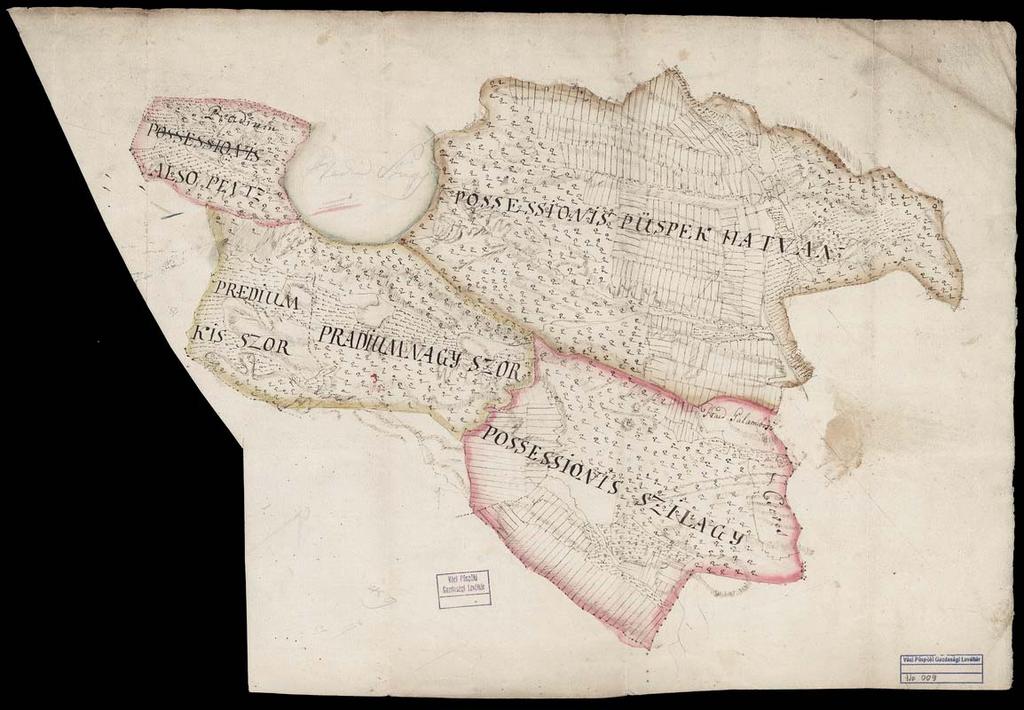 Prædium
POSSESSIONIS
ALSO PENTZ
POSSESSIONIS PÜSPEK HATVAN
PREDIUM
KIS SZOR
PRADIUM NAGY SZOR
POSSESSIONIS SZILAGY
Váci Püspöki
Gazdasági Levéltár
Váci Püspöki Gazdasági Levéltár
No 009